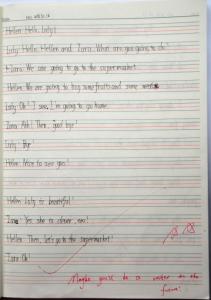 Helen: Hello, Lucy!
Lucy: Hello, Hellen and Zara. What are you going to do?
Zara: We are going to go to the supermarket.
Helen: We are going to buy some fruits and some
Lucy: Oh! I see, I'm going to go home.
Zara: Ahh! Then, good bye!
Lucy: Bye!
Helen: Nice to see you!
Helen: Lucy is beautiful!
Zara: Yes she is clever, too!
Hellen: Then, let's go to the supermarket!
Zara: Ok!
Maybe you'll be a writer in the
future!